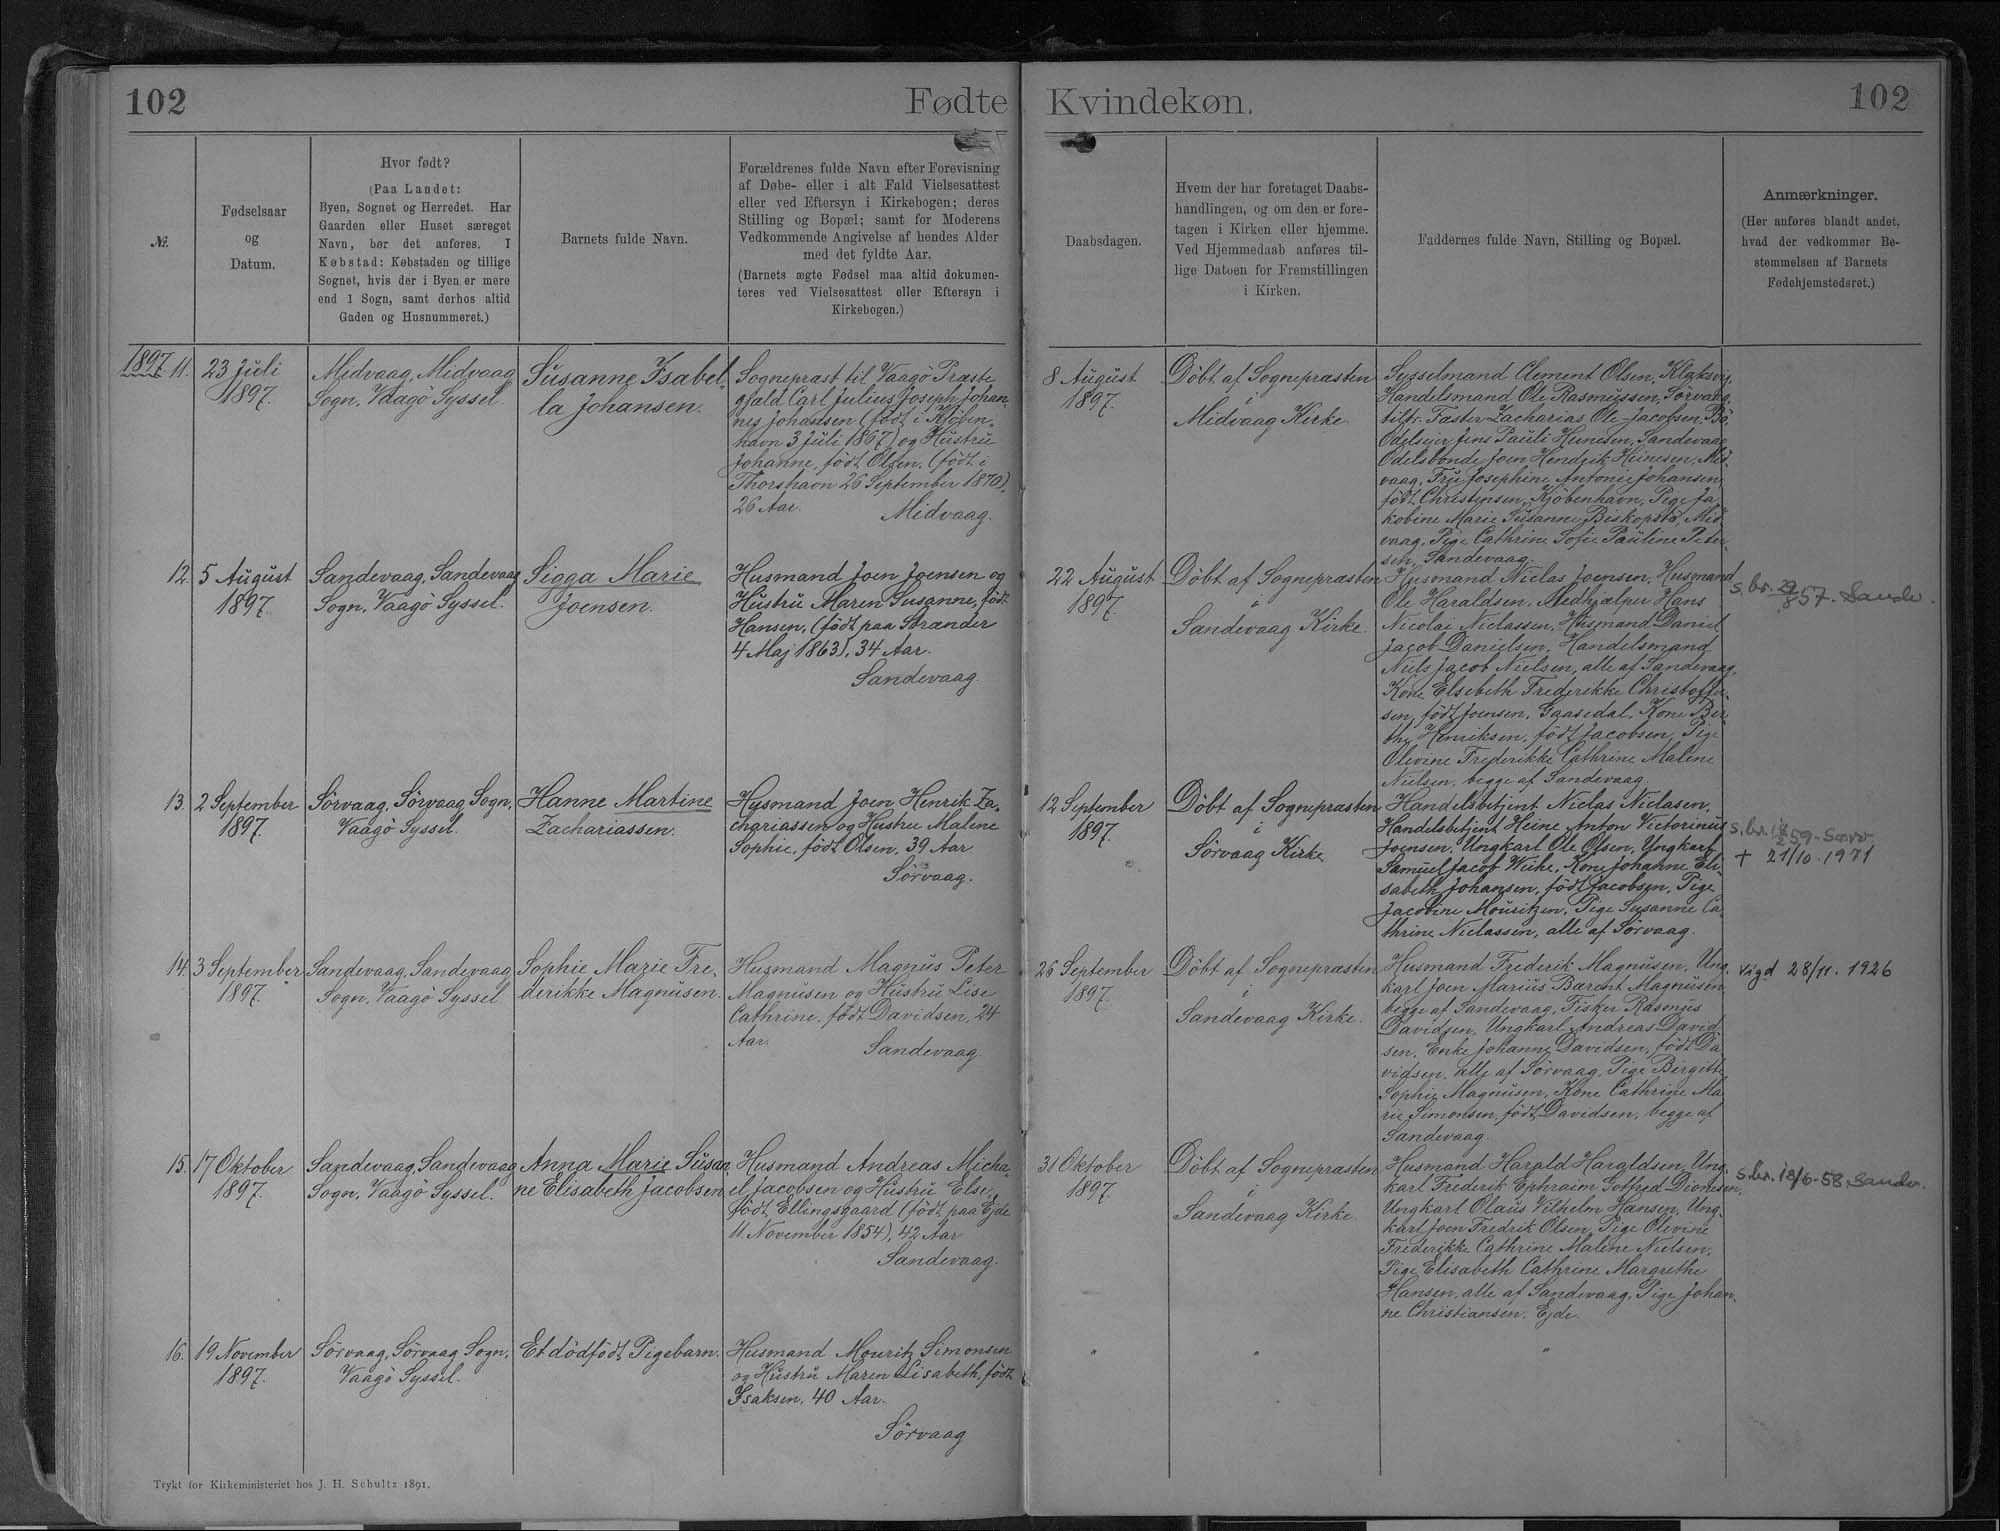 102
Fødte
Kvindekøn.
102
№.
Fødselsaar
og
Datum.
Hvor født?
(Paa Landet:
Byen, Sognet og Herredet. Har
Gaarden eller Huset særeget
Navn, bør det anføres. I
Købstad: Købstaden og tillige
Sognet, hvis der i Byen er mere
end 1 Sogn, samt derhos altid
Gaden og Husnummeret.)
Barnets fulde Navn.
Forældrenes fulde Navn efter Forevisning
af Døbe- eller i alt Fald Vielsesattest
eller ved Eftersyn i Kirkebogen; deres
Stilling og Bopæl; samt for Moderens
Vedkommende Angivelse af hendes Alder
med det fyldte Aar.
(Barnets ægte Fødsel maa altid dokumen-
teres ved Vielsesattest eller Eftersyn i
Kirkebogen.)
Daabsdagen.
Hvem der har foretaget Daabs-
handlingen, og om den er fore-
tagen i Kirken eller hjemme.
Ved Hjemmedaab anføres til-
lige Datoen for Fremstillingen
i Kirken.
Faddernes fulde Navn, Stilling og Bopæl.
Anmærkninger.
(Her anføres blandt andet,
hvad der vedkommer Be-
stemmelsen af Barnets
Fødehjemstedsret.)
1897. 11.
23 Juli
1897.
Midvaag, Midvaag
Sogn, Vaagö Syssel.
Susanne Isabel-
la Johansen.
Sognepræst til Vaagö Præste-
gjæld Carl Julius Joseph Johan-
nes Johansen (födt i Kjöben-
havn 3 Juli 1867) og Hustru
Johanne, födt Olsen, (födt i
Thorshavn 26 September 1870),
26 Aar.
Midvaag.
8 August
1897.
Döbt af Sognepræsten
i
Midvaag Kirke.
Sysselmand Clement Olsen, Klaksvig,
Handelsmand Ole Rasmussen, Sörvaag,
tiltr. Fæster Zacharias Ole Jacobsen, Bö,
Odelsejer Jens Pauli Heinesen, Sandevaag
Odelsbonde Joen Hendrik Heinesen, Mid-
vaag, Fru Josephine Antonie Johansen,
födt Christensen, Kjöbenhavn, Pige Ja-
kobine Marie Susanne Biskopstö, Mid-
vaag, Pige Cathrine Sofie Pauline Peter-
sen, Sandevaag.
12.
5 August
1897.
Sandevaag, Sandevaag
Sogn, Vaagö Syssel.
Sigga Marie
Joensen.
Husmand Joen Joensen og
Hustru Maren Susanne, födt
Hansen, (födt paa Strænder
4 Maj 1863), 34 Aar.
Sandevaag.
22 August
1897.
Döbt af Sognepræsten
i
Sandevaag Kirke.
Husmand Niclas Joensen, Husmand
Ole Haraldsen, Medhjælper Hans
Nicolai Niclassen, Husmand Daniel
Jacob Danielsen, Handelsmand
Niels Jacob Nielsen, alle af Sandevaag,
Kone Elsebeth Frederikke Christoffer-
sen, födt Joensen, Gaasedal, Kone Bir-
the Henriksen, födt Jacobsen, Pige
Olevine Frederikke Cathrine Malene
Nielsen, begge af Sandevaag.
s. br. 29/8 57. Sandv.
13.
2 September
1897.
Sörvaag, Sörvaag Sogn,
Vaagö Syssel.
Hanne Martine
Zachariassen.
Husmand Joen Henrik Za-
chariassen og Hustru Malene
Sophie, födt Olsen, 39 Aar
Sörvaag.
12 September
1897.
Döbt af Sognepræsten
i
Sörvaag Kirke.
Handelsbetjent Niclas Niclasen,
Handelsbetjent Heine Anton Victorinus
Joensen, Ungkarl Ole Olsen, Ungkarl
Samuel Jacob Weihe, Kone Johanne Eli-
sabeth Johansen, födt Jacobsen, Pige
Jacobine Mouritzen, Pige Susanne Ca-
thrine Niclassen, alle af Sörvaag.
s. br. 18/2 59 - Sørv.
+ 21/10. 1971
14.
3 September
1897.
Sandevaag, Sandevaag
Sogn, Vaagö Syssel.
Sophie Marie Fre-
derikke Magnusen.
Husmand Magnus Peter
Magnusen og Hustru Lise
Cathrine, födt Davidsen, 24
Aar.
Sandevaag.
26 September
1897.
Döbt af Sognepræsten
i
Sandevaag Kirke.
Husmand Frederik Magnusen, Ung-
karl Joen Marius Barent Magnusen
begge af Sandevaag, Fisker Rasmus
Davidsen, Ungkarl Andreas David-
sen, Enke Johanne Davidsen, födt Da-
vidsen, alle af Sörvaag, Pige Birgitte
Sophie Magnusen, Kone Cathrine Ma-
rie Simonsen, födt Davidsen, begge af
Sandevaag.
vigd 28/11. 1926
15.
17 Oktober
1897.
Sandevaag, Sandevaag
Sogn, Vaagö Syssel.
Anna Marie Susan-
ne Elisabeth Jacobsen
Husmand Andreas Micha-
el Jacobsen og Hustru Else,
födt Ellingsgaard (födt paa Ejde
11. November 1854), 42 Aar
Sandevaag.
31 Oktober
1897.
Döbt af Sognepræsten
i
Sandevaag Kirke.
Husmand Harald Haraldsen, Ung-
karl Frederik Ephraim Gotfred Dionesen,
Ungkarl Olaus Vilhelm Hansen, Ung-
karl Joen Fredrik Olsen, Pige Olevine
Frederikke Cathrine Malene Nielsen,
Pige Elisabeth Cathrine Margrethe
Hansen, alle af Sandevaag, Pige Johan-
ne Christiansen, Ejde.
s. br. 18/6-58. Sandv.
16.
19 November
1897.
Sörvaag, Sörvaag Sogn,
Vaagö Syssel.
Et dödfödt Pigebarn.
Husmand Mouritz Simonsen
og Hustru Maren Lisabeth, födt
Isaksen, 40 Aar.
Sörvaag
"
"
"
Trykt for Kirkeministeriet hos J. H. Schultz 1891.